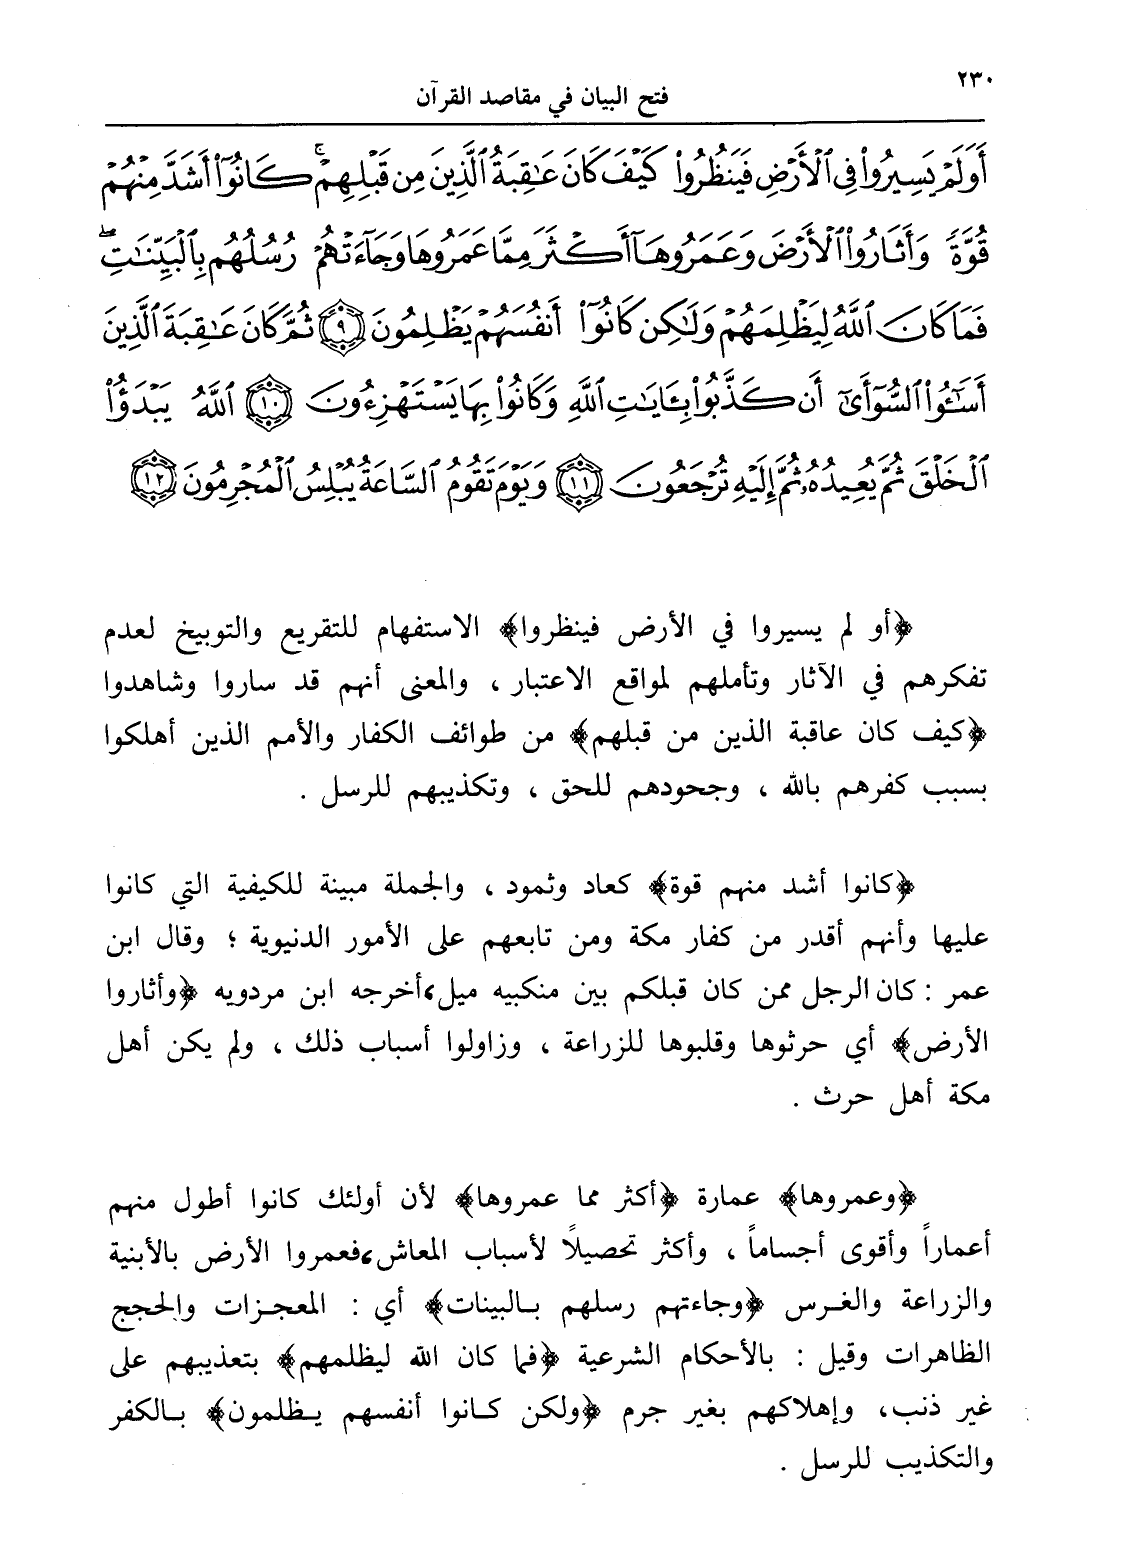 ٢٣٠
فتح البيان في مقاصد القرآن
أَوَلَمْ يَسِيرُواْ فِى ٱلْأَرْضِ فَيَنظُرُواْ كَيْفَ كَانَ عَٰقِبَةُ ٱلَّذِينَ مِن قَبْلِهِمْ ۚ كَانُوٓاْ أَشَدَّ مِنْهُمْ
قُوَّةً وَأَثَارُواْ ٱلْأَرْضَ وَعَمَرُوهَآ أَكْثَرَ مِمَّا عَمَرُوهَا وَجَآءَتْهُمْ رُسُلُهُم بِٱلْبَيِّنَٰتِ ۖ
فَمَا كَانَ ٱللَّهُ لِيَظْلِمَهُمْ وَلَٰكِن كَانُوٓاْ أَنفُسَهُمْ يَظْلِمُونَ ﴿٩﴾ ثُمَّ كَانَ عَٰقِبَةَ ٱلَّذِينَ
أَسَٰٓـُٔواْ ٱلسُّوٓأَىٰٓ أَن كَذَّبُواْ بِـَٔايَٰتِ ٱللَّهِ وَكَانُواْ بِهَا يَسْتَهْزِءُونَ ﴿١٠﴾ ٱللَّهُ يَبْدَؤُاْ
ٱلْخَلْقَ ثُمَّ يُعِيدُهُۥ ثُمَّ إِلَيْهِ تُرْجَعُونَ ﴿١١﴾ وَيَوْمَ تَقُومُ ٱلسَّاعَةُ يُبْلِسُ ٱلْمُجْرِمُونَ ﴿١٢﴾
﴿أو لم يسيروا في الأرض فينظروا﴾ الاستفهام للتقريع والتوبيخ لعدم
تفكرهم في الآثار وتأملهم لمواقع الاعتبار ، والمعنى أنهم قد ساروا وشاهدوا
﴿كيف كان عاقبة الذين من قبلهم﴾ من طوائف الكفار والأمم الذين أهلكوا
بسبب كفرهم بالله ، وجحودهم للحق ، وتكذيبهم للرسل .
﴿كانوا أشد منهم قوة﴾ كعاد وثمود ، والجملة مبينة للكيفية التي كانوا
عليها وأنهم أقدر من كفار مكة ومن تابعهم على الأمور الدنيوية ؛ وقال ابن
عمر : كان الرجل ممن كان قبلكم بين منكبيه ميل، أخرجه ابن مردويه ﴿وأثاروا
الأرض﴾ أي حرثوها وقلبوها للزراعة ، وزاولوا أسباب ذلك ، ولم يكن أهل
مكة أهل حرث .
﴿وعمروها﴾ عمارة ﴿أكثر مما عمروها﴾ لأن أولئك كانوا أطول منهم
أعماراً وأقوى أجساماً ، وأكثر تحصيلاً لأسباب المعاش، فعمروا الأرض بالأبنية
والزراعة والغرس ﴿وجاءتهم رسلهم بالبينات﴾ أي : المعجزات والحجج
الظاهرات وقيل : بالأحكام الشرعية ﴿فما كان الله ليظلمهم﴾ بتعذيبهم على
غير ذنب، وإهلاكهم بغير جرم ﴿ولكن كانوا أنفسهم يظلمون﴾ بالكفر
والتكذيب للرسل .